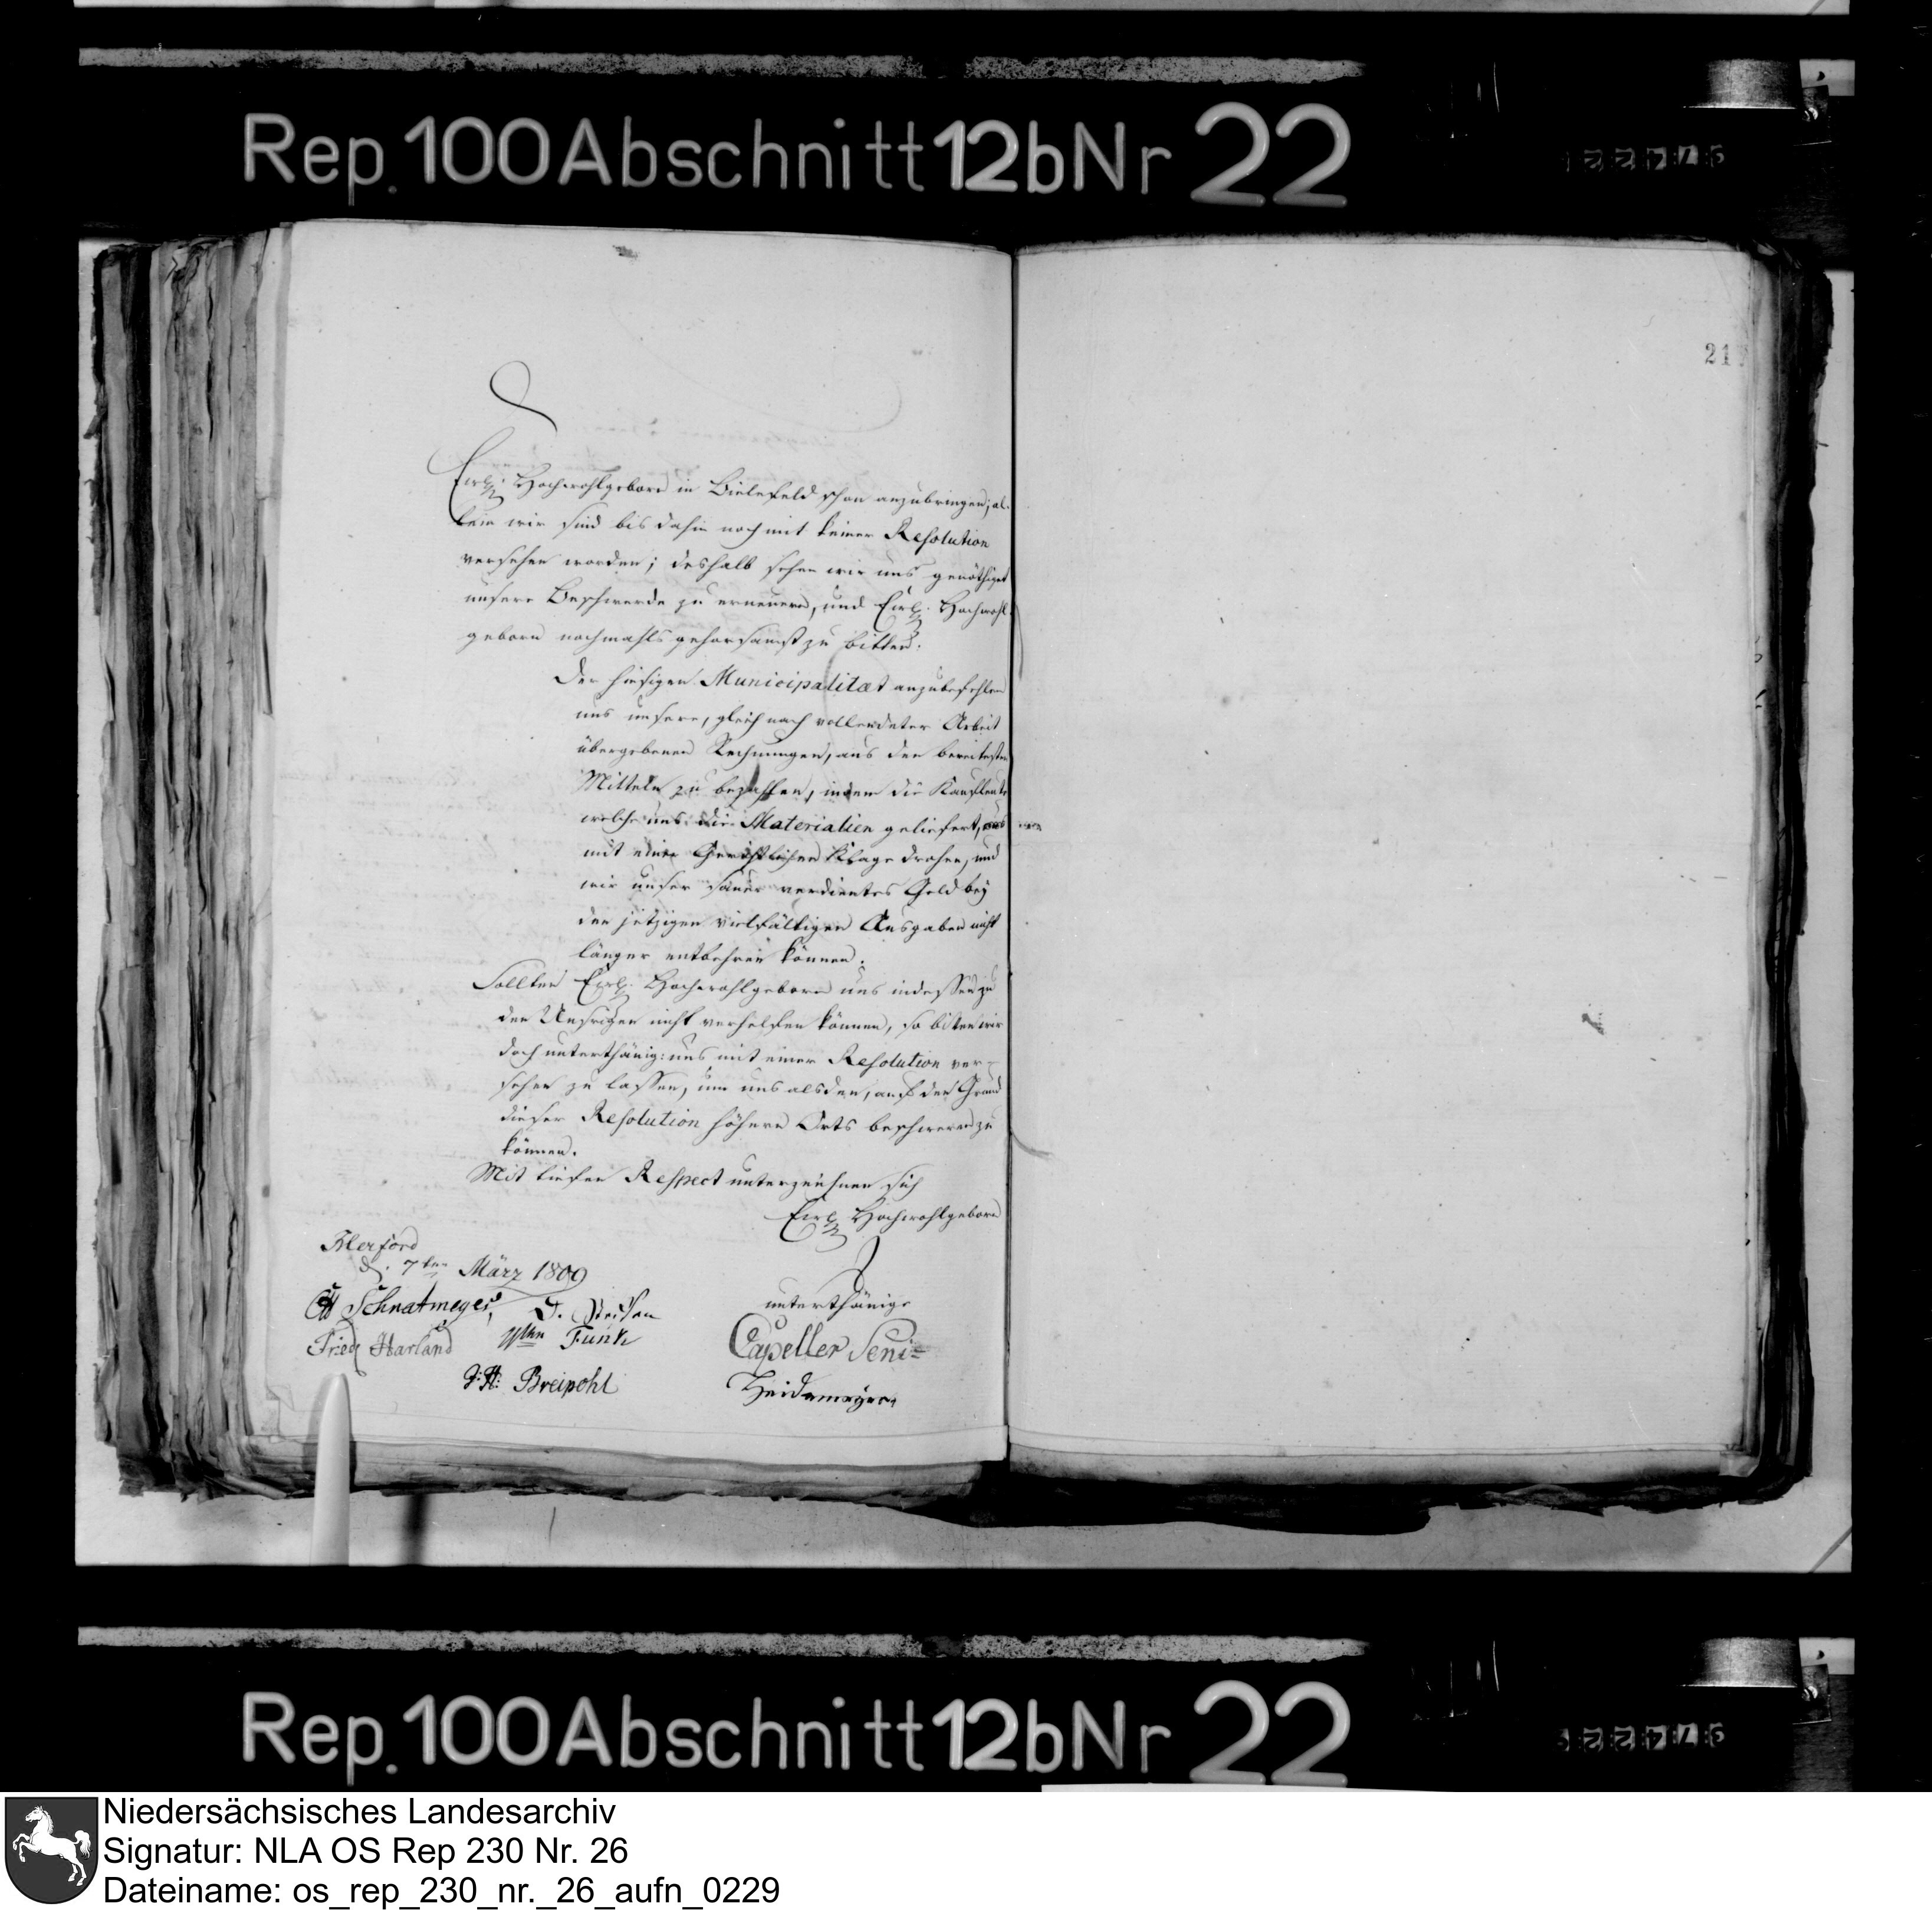 Rep. 100 Abschnitt 12b Nr 22
217
Ew. Hochwohlgeborn in Bielefeld schon anzubringen; al-
lein wir sind bis dahin noch mit keiner Resolution
versehen worden; deshalb sehen wir uns genöthiget
unsere Beschwerde zu erneuern, und Ew. Hochwohl
geborn nochmahls gehorsamst zu bitten:
Der hiesigen Municipalitæt anzubefehlen
uns unsere, gleich nach vollendeter Arbeit
übergebenen Rechnungen, aus den bereitesten
Mitteln zu bezahlen, indem die Kaufleute
welche uns die Materialien geliefert, uns
mit einer Gerichtlichen Klage drohen, und
wir unser sauer verdientes Geld bey
den jetzigen vielfältigen Ausgaben nicht
länger entbehren können.
Sollten Ew. Hochwohlgeborn uns indessen zu
den Unsrigen nicht verhelfen können, so bitten wir
doch unterthänig: uns mit einer Resolution ver-
sehen zu lassen, um uns alsden, auf den Grund
dieser Resolution höhern Orts beschweren zu
können.
Mit tiefen Respect unterzeichnen sich
Ew. Hochwohlgeborn
Herford
d. 7ten März 1809
unterthänige
Schnatmeyer
Fried Harland
Funk
J: H: Breipohl
Capeller Seni=
Heidemeyer
Rep. 100 Abschnitt 12b Nr 22
Niedersächsisches Landesarchiv
Signatur: NLA OS Rep 230 Nr. 26
Dateiname: os_rep_230_nr._26_aufn_0229